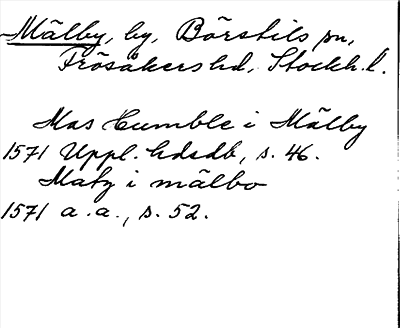 Mälby, by, Börstils sn,
Frösåkers hd, Stockh. l.
Mas Humble i Mälby
1571 Uppl. hdsdb, s. 46.
Matz i mälbo
1571 a.a., s. 52.